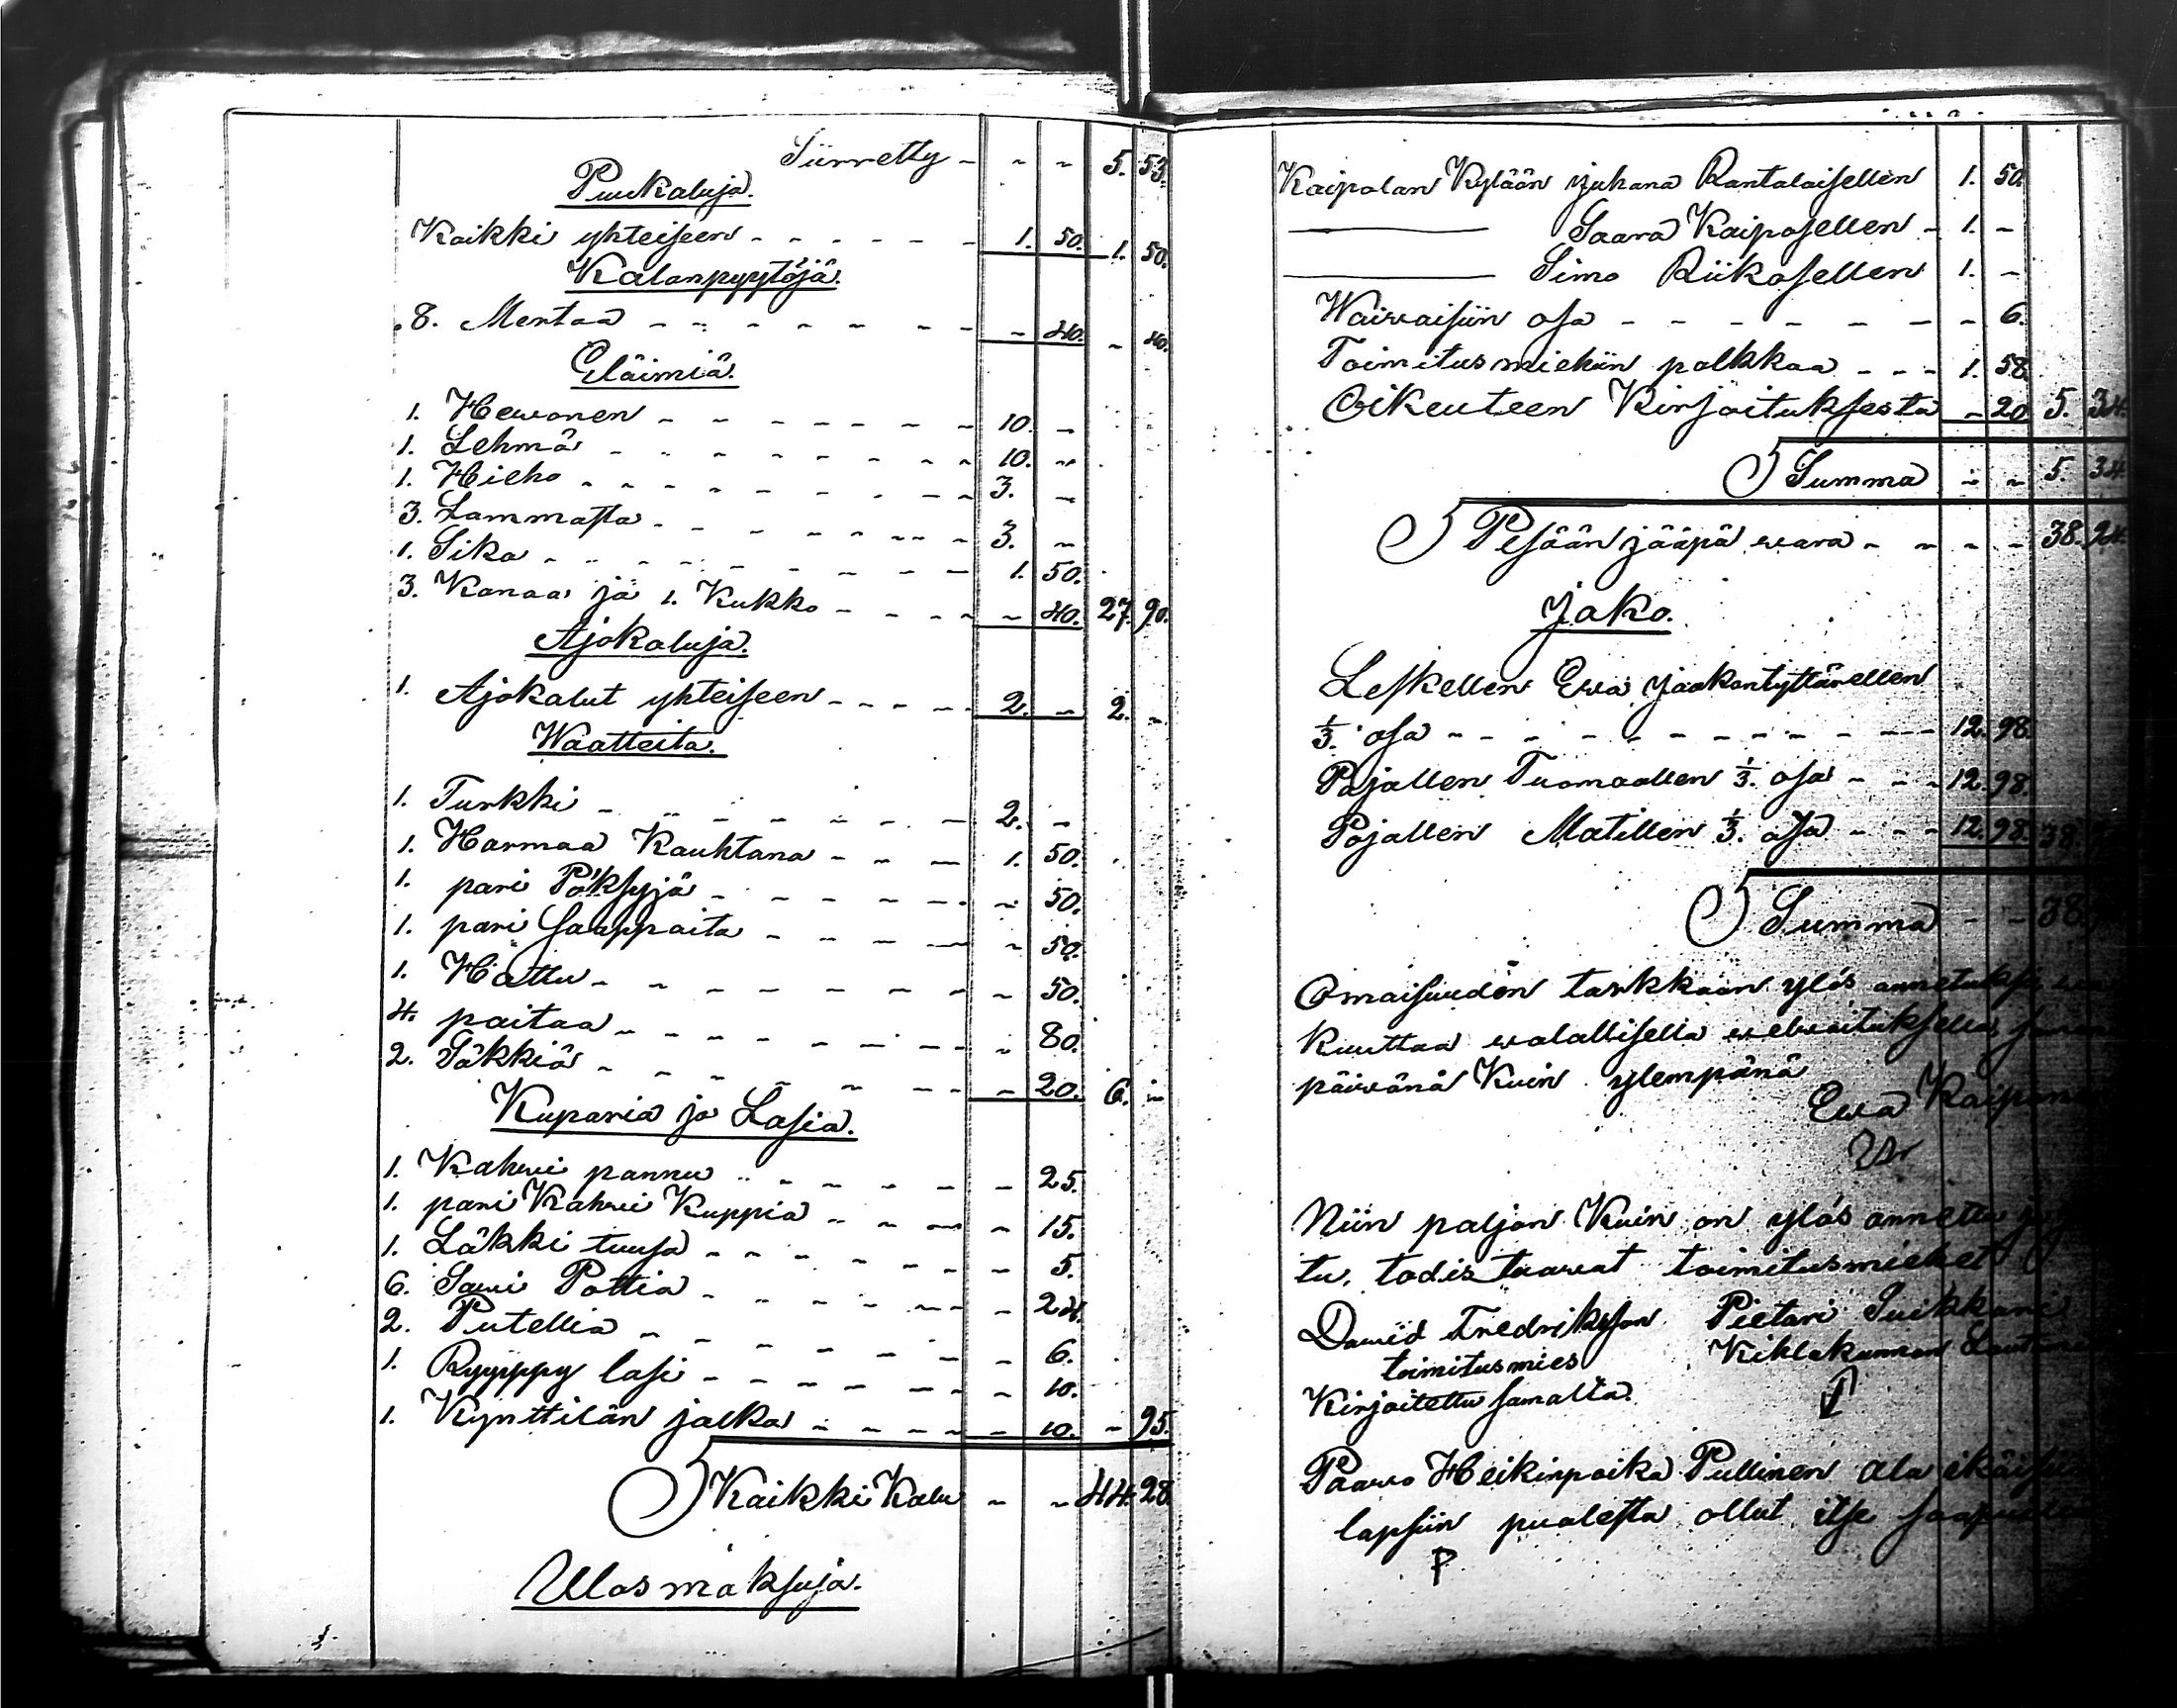 Siirretty - - - 5. 53.
Puukaluja.
Kaikki yhteiseen - - - - - - 1. 50. 1. 50.
Kalanpyytöjä.
8. Mertaa - - - - - - - - - 40. - 40.
Eläimiä.
1. Hewonen - - - - - - - 10. -
1. Lehmä - - - - - - - - 10. -
1. Hieho - - - - - - - - - 3. -
3. Lammasta - - - - - - - - 3. -
1. Sika - - - - - - - - - 1. 50.
3. Kanaa ja 1. Kukko - - - - - 40. 27. 90.
Ajokaluja.
1. Ajokalut yhteiseen - - - - - 2. - 2. -
Waatteita.
1. Turkki - - - - - - - - 2. -
1. Harmaa Kauhtana - - - 1. 50.
1. pari Pöksyjä - - - - - - - 50.
1. pari Saappaita - - - - - 50.
1. Hattu - - - - - - - - 50.
4. paitaa - - - - - - - - - 80.
2. Säkkiä - - - - - - - - 20. 6. -
Kuparia ja Lasia.
1. Kahwi pannu - - - - - - - 25.
1. pari Kahwi Kuppia - - - - 15.
1. Läkki tuusa - - - - - - - 5.
6. Sawi Pottia - - - - - - - 24.
2. Putellia - - - - - - - - 6.
1. Ryyppy lasi - - - - - - - 10.
1. Kynttilän jalka - - - - - - 10. - 95.
Kaikki Kalu - - 44. 28.
Ulosmaksuja.
Kaipolan Kylään Juhana Rantalaisellen 1. 50.
——— Saara Kaiposellen - 1. -
——— Simo Riikosellen 1. -
Waiwaisiin osa - - - - - - - - 6.
Toimitusmiehiin palkkaa - - - 1. 58.
Oikeuteen Kirjoituksesta - 20 5. 34.
Summa - - 5. 34
Pesään jääpä wara - - - - 38. 94.
Jako.
Leskellen Ewa Jaakontyttärellen
1/3. osa - - - - - - - - - - - - 12. 98.
Pojallen Tuomaallen 1/3. osa - - - 12. 98.
Pojallen Matillen 1/3. osa - - - 12. 98. 38.
Summa - - 38.
Omaisuuden tarkkaan ylös annetuksi
kuuttaa walallisella welwoituksella
päiwänä Kuin ylempänä
Ewa
Niin paljon Kuin on ylös annettu
tu, todistaawat toimitusmiehet
Dawid Fredriksson Pietari Suikkari
toimitusmies Kihlakunnan
Kirjoitettu samalla.
Paawo Heikinpoika Pullinen ala
lapsiin puolesta ollut itse
P